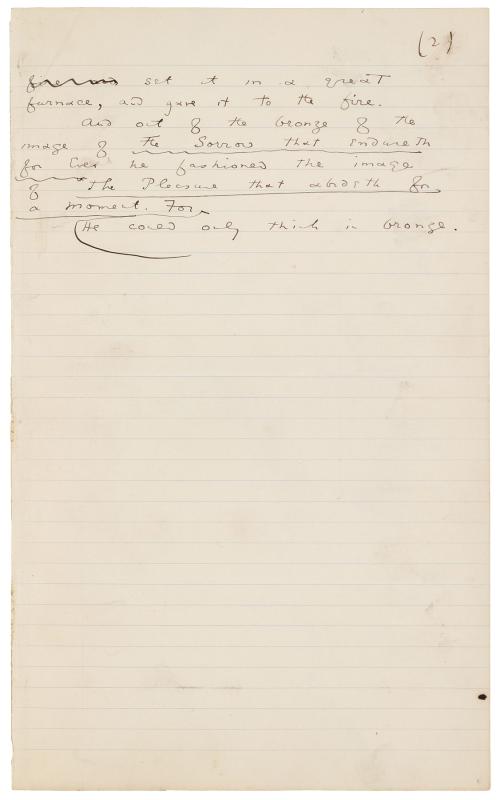 (2)
set it in a great
furnace, and gave it to the fire.
And out of the bronze of the
image of The Sorrow that endureth
for Ever he fashioned the image
of The Pleasure that abideth for
a moment. For
He could only think in bronze.